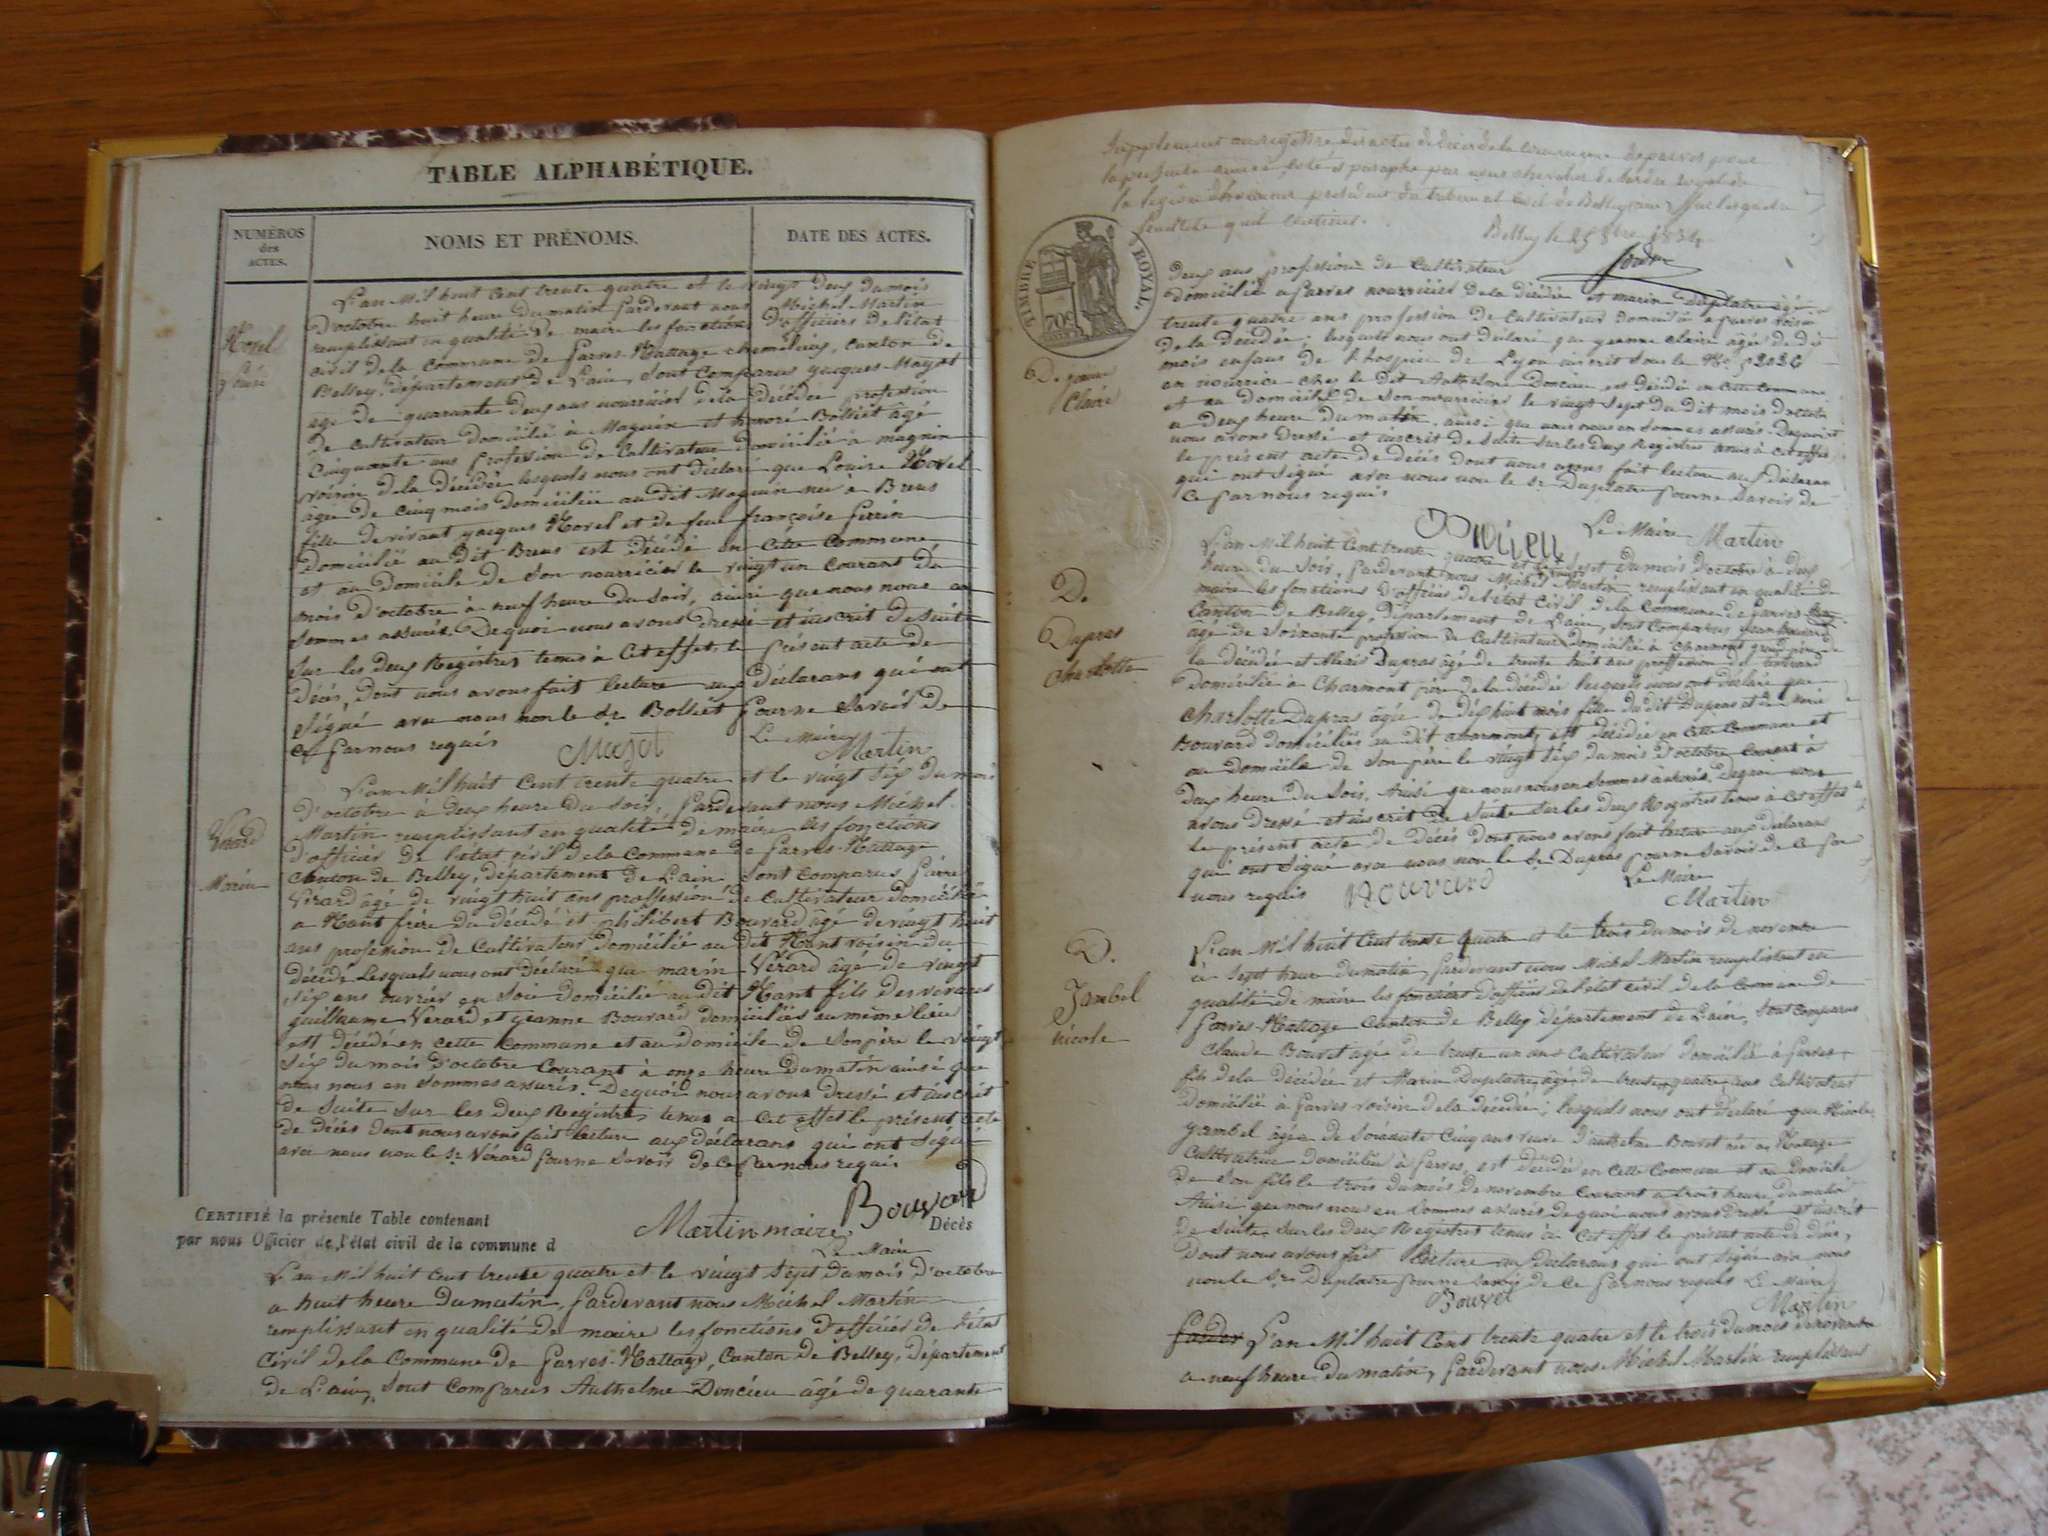 TABLE ALPHABÉTIQUE.
NUMÉROS
des
ACTES.
NOMS ET PRÉNOMS.
DATE DES ACTES.
L'an Mil huit Cent trente quatre et le vingt deux du mois
D'octobre huit heure du matin pardevant nous Michel Martin
remplissant en qualité de maire les fonctions d'officiers de l'état
civil de la commune de Parves-Nattage canton de
Belley, département de L'ain, sont comparus jacques Mayot
agé de quarante deux ans nourricier de la décédée profession
de cultivateur domicilié à Magnin et honoré Bolliet âgé
Cinquante ans profession de Cultivateur domicilié à magnin
voisin de la décédée lesquels nous ont déclaré que Louise Morel
âgée de cinq mois domiciliée au dit Magnin née à Brens
fille de vivant jacques Morel et de feue françoise perrin
domicilié au dit Brens est décédé en cette commune
et au domicile de son nourricier le vingt un courant du
mois d'octobre à neuf heure du soir, ainsi que nous nous en
sommes assurés. De quoi nous avons dressé et inscrit de suite
sur les deux Registres tenus à cet effet, le présent acte de
Décès, dont nous avons fait lecture aux déclarans qui ont
signé avec nous non le sr Bolliet pour ne savoir de
ce par nous requis
Le Maire
Martin
L'an Mil huit Cent trente quatre et le vingt six du mois
D'octobre à deux heure du soir, pardevant nous Michel
Martin remplissant en qualité de maire les fonctions
d'officier de l'état civil de la commune de Parves-Nattage
Canton de Belley, département de L'ain sont comparus pierre
Vérard âgé de vingt huit ans profession de cultivateur domicilié
a Nant frère du décédé et philibert Bouvard âgé de vingt huit
ans profession de Cultivateur domicilié au dit Nant voisin du
décédé Lesquels nous ont déclaré que marin Vérard âgé de vingt
six ans ouvrier en soie domicilié au dit Nant fils des vivans
guillaume Verard et jeanne Bouvard domiciliés au même lieu
est décédé en cette commune et au domicile de son père le vingt
six du mois d'octobre Courant à onze heure du matin ainsi que
nous nous en sommes assurés. De quoi nous avons dressé et inscrit
de suite sur les deux Registres tenus a cet effet le présent acte
de décès dont nous avons fait lecture aux déclarans qui ont signé
avec nous non le sr Vérard pour ne savoir de ce par nous requis
Bouvard
Martin maire
CERTIFIÉ la présente Table contenant
Décès
par nous Officier de l'état civil de la commune d
Le Maire
L'an Mil huit cent trente quatre et le vingt sept du mois D'octobre
a huit heure du matin, pardevant nous Michel Martin
remplissant en qualité de maire les fonctions d'officier de l'état
Civil de la Commune de Parves-Nattage, Canton de Belley, département
de L'ain, sont comparus Anthelme Doncieu âgé de quarante
Supplément au registre des actes de décès de la commune de parves pour
la présente année coté et paraphé par nous chevalier de l'ordre royal de
la légion d'honneur président du tribunal civil de Belley
feuillets qu'il contient.
Belley le 25 8bre 1834
TIMBRE ROYAL.
70c
deux ans profession de Cultivateur
domicilié a Parves nourricier de la décédée et marin Duplatre âgé
trente quatre ans profession de cultivateur domicilié a Parves voisin
de la décédée; lesquels nous ont déclaré que jeanne claire âgée de dix
mois enfans de l'hospice de Lyon inscrit sous le No 52036
en nourrice chez le dit Anthelme Doncieu est décédé en cette commune
et au domicile de son nourricier le vingt sept du dit mois d'octobre
a deux heure du matin. ainsi que nous nous en sommes assurés. De quoi
nous avons dressé et inscrit de suite sur les deux Registres tenus à cet effet
le présent acte de décès dont nous avons fait lecture aux déclarans
qui ont signé avec nous non le sr Duplatre pour ne savoir de
ce par nous requis
Le Maire Martin
L'an Mil huit Cent trente quatre et le vingt sept du mois d'octobre à deux
heure du soir, pardevant nous Michel Martin remplissant en qualité de
maire les fonctions d'officier de l'état civil de la Commune de Parves
Canton de Belley, Département de L'ain, sont comparus jean Bouvard
âgé de soixante profession de Cultivateur domicilié à Charmont grand père de
la décédée et Alexis Dupras âgé de trente huit ans profession de
domicilié à Charmont père de la décédée lesquels nous ont déclaré que
Charlotte Dupras âgée de dix huit mois fille du dit Dupras et de
Bouvard domiciliés au dit charmont, est décédée en cette commune et
au domicile de son père le vingt six du mois d'octobre courant à
deux heure du soir. Ainsi que nous nous en sommes assurés. De quoi nous
avons dressé et inscrit de suite sur les deux Registres tenus à cet effet
Le présent acte de décès dont nous avons fait lecture aux déclarans
qui ont signé avec nous non le sr Dupras pour ne savoir de ce par
nous requis Bouvard
Le Maire
Martin
L'an Mil huit Cent trente quatre et le trois du mois de novembre
a sept heure du matin, pardevant nous Michel Martin remplissant en
qualité de maire les fonctions d'officier de l'état civil de la Commune de
Parves-Nattage Canton de Belley département de L'ain, sont comparus
Claude Bouvet agé de trente un ans cultivateur domicilié à Parves
fils de la décédée et Marin Duplatre, âgé de trente quatre ans cultivateur
domicilié à Parves voisin de la décédée; lesquels nous ont déclaré que Nicole
Jambel âgée de soixante cinq ans veuve d'anthelme Bouvet née a Nattage
Cultivatrice domiciliée à Parves, est décédée en cette commune et au Domicile
de son fils le trois du mois de novembre courant a trois heure du matin
Ainsi que nous nous en sommes assurés de quoi nous avons dressé et inscrit
de suite sur les deux Registres tenus à cet effet le présent acte de décès,
dont nous avons fait lecture aux déclarans qui ont signé avec nous
non le sr Duplatre pour ne savoir de ce par nous requis Le Maire
Bouvet
Martin
L'an Mil huit Cent trente quatre et le trois du mois de novembre
a neuf heure du matin, pardevant nous Michel Martin remplissant
Morel
Louise
Vérard
Marin
D. jeanne
Claire
D.
Dupras
Charlotte
D.
Jambel
nicole